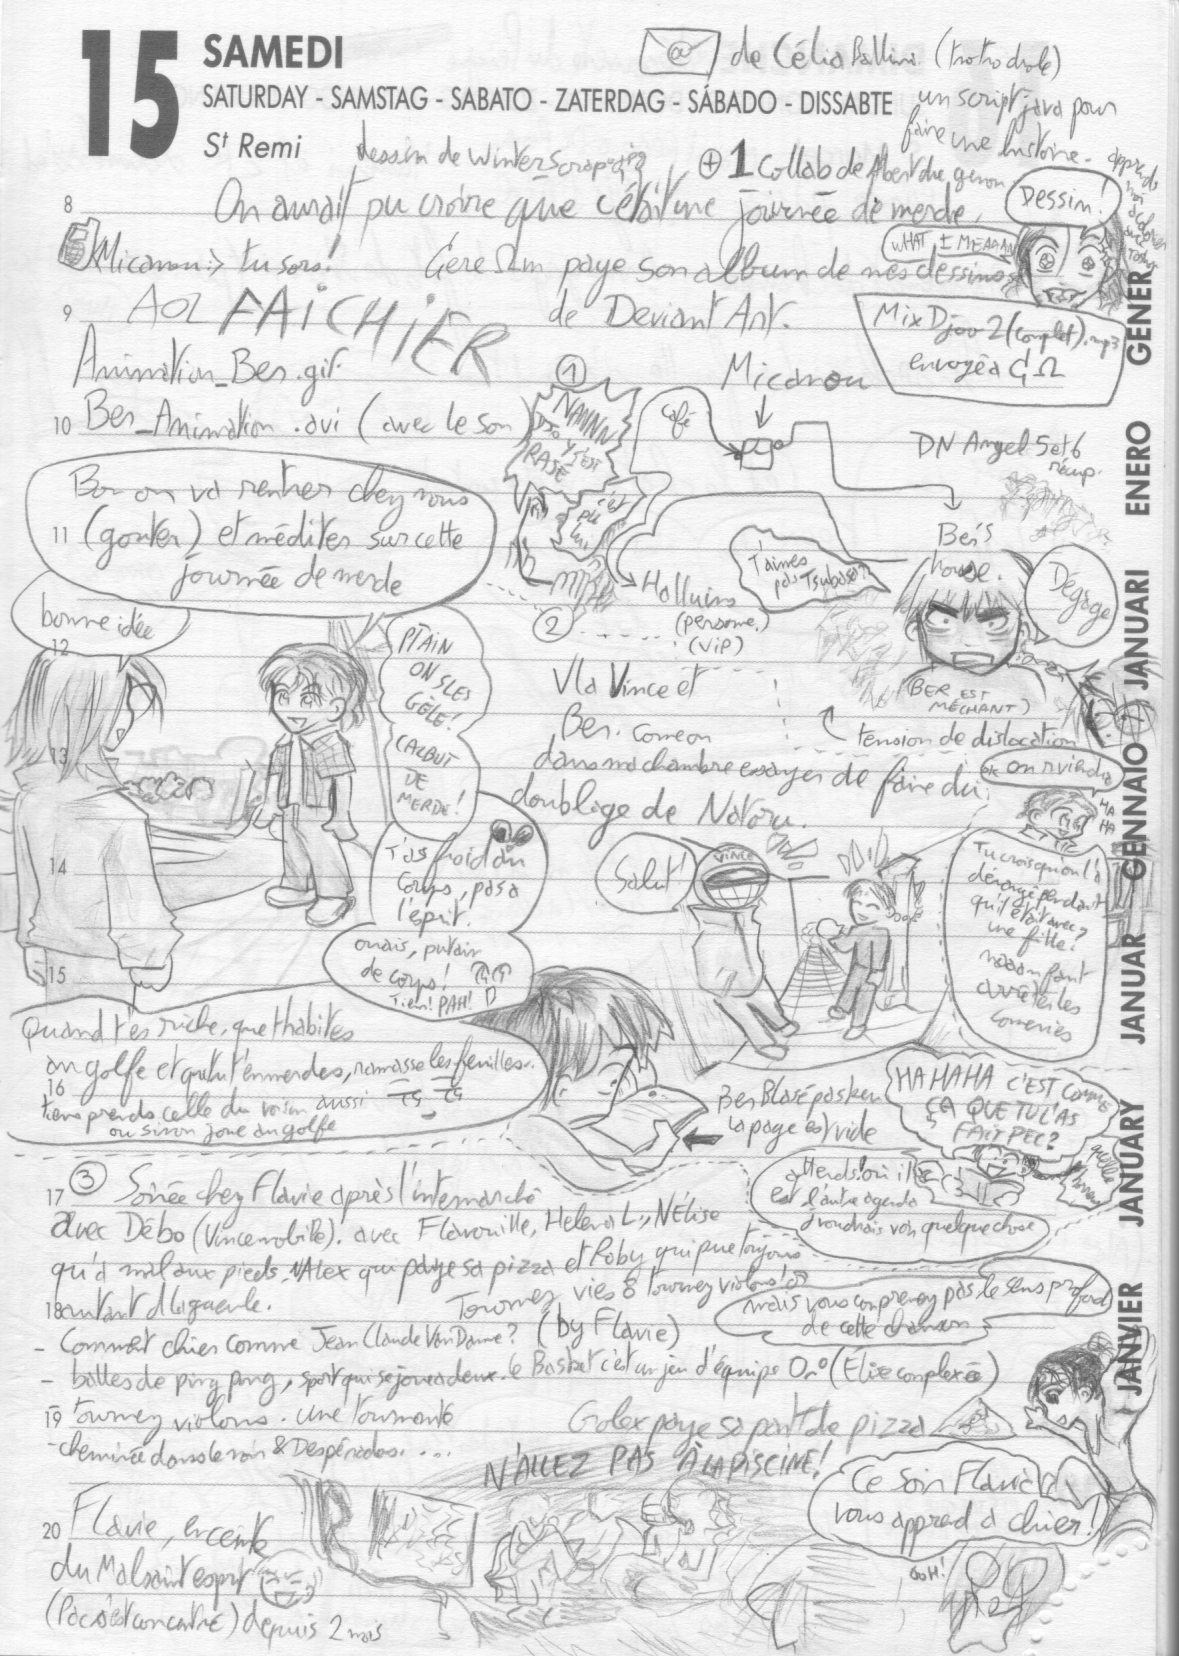 15 SAMEDI
SATURDAY - SAMSTAG - SABATO - ZATERDAG - SÁBADO - DISSABTE
St Remi
@ de Célia Ballini (trotro drole)
un script java pour
faire une histoire.
dessin de Winterscrap
+ 1 collab de Albert
8
On aurait pu croire que c'était une journée de merde,
Dessin!
WHAT I MEAAAN
Micanou :> tu sors!
Gere Ωm paye son album de mes dessins
de Deviant Art.
9
AOL FAICHIER
Mix Djoo 2 (complet).mp3
envoyé à GΩ
Animation_Ber.gif
10
Ber_Animation.avi (avec le son)
①
NANNN
RASÉ
et
pi
lui
Micanou
café
DN Angel 5 et 6
récup.
Ber's
house.
11
Bon on va rentrer chez nous
(gouter) et méditer sur cette
journée de merde
bonne idée
12
PTAIN
ON SLES
GÈLE!
CALBUT
DE
MERDE!
T'aimes
pas Tsubasa?
Dégage
Halluins
(personne.)
(VIP)
BER EST
MÉCHANT)
②
Vla Vince et
Ber. Comeon
tension de dislocation
dans ma chambre essayer de faire du
doublage de Notoru.
ok on rviendra
HA
HA
13
14
T'as froid au
corps, pas à
l'esprit.
ouais, putain
de corps!
Tien! PAH!
15
Salut!
VINCE
Tu crois qu'on l'a
dérangé pendant
qu'il était avec
une fille?
naaan faut
arrêter les
conneries
Quand t'es riche, que t'habites
au golfe et qu'tu t'emmerdes, ramasse les feuilles.
16
tiens prends celle du voisin aussi
ou sinon joue au golfe
Ber Blasé pasken
la page est vide
HAHAHA C'EST COMME
ÇA QUE TU L'AS
FAIT PEC?
attends! où il
est l'autre agenda
j'voudrais voir quelque chose
17
③ Soirée chez Flavie après l'intermarché
avec Débo (Vincemobile). avec Flavouille, Helena L., NÉlise
qu'a mal aux pieds, NAlex qui paye sa pizza et Roby qui pue toujours
18
autant d'la gueule.
Tournez vies & tournez violons!
mais vous comprenez pas le sens profond
de cette chanson
- Comment chier comme Jean Claude Van Damme? (by Flavie)
- balles de ping pong, sport qui se joue a deux. le Basket c'est un jeu d'équipe O_o (Élise complexée)
19
tournez violons. une tourmente
Golex paye sa part de pizza
- cheminée dans le noir & Despérados. ...
N'ALLEZ PAS À LA PISCINE!
Ce soir Flavie
vous apprend à chier!
20
Flavie, enceinte
du Malsaint esprit
depuis 2 mois
OOH!
JANVIER JANUARY JANUAR GENNAIO JANUARI ENERO GENER